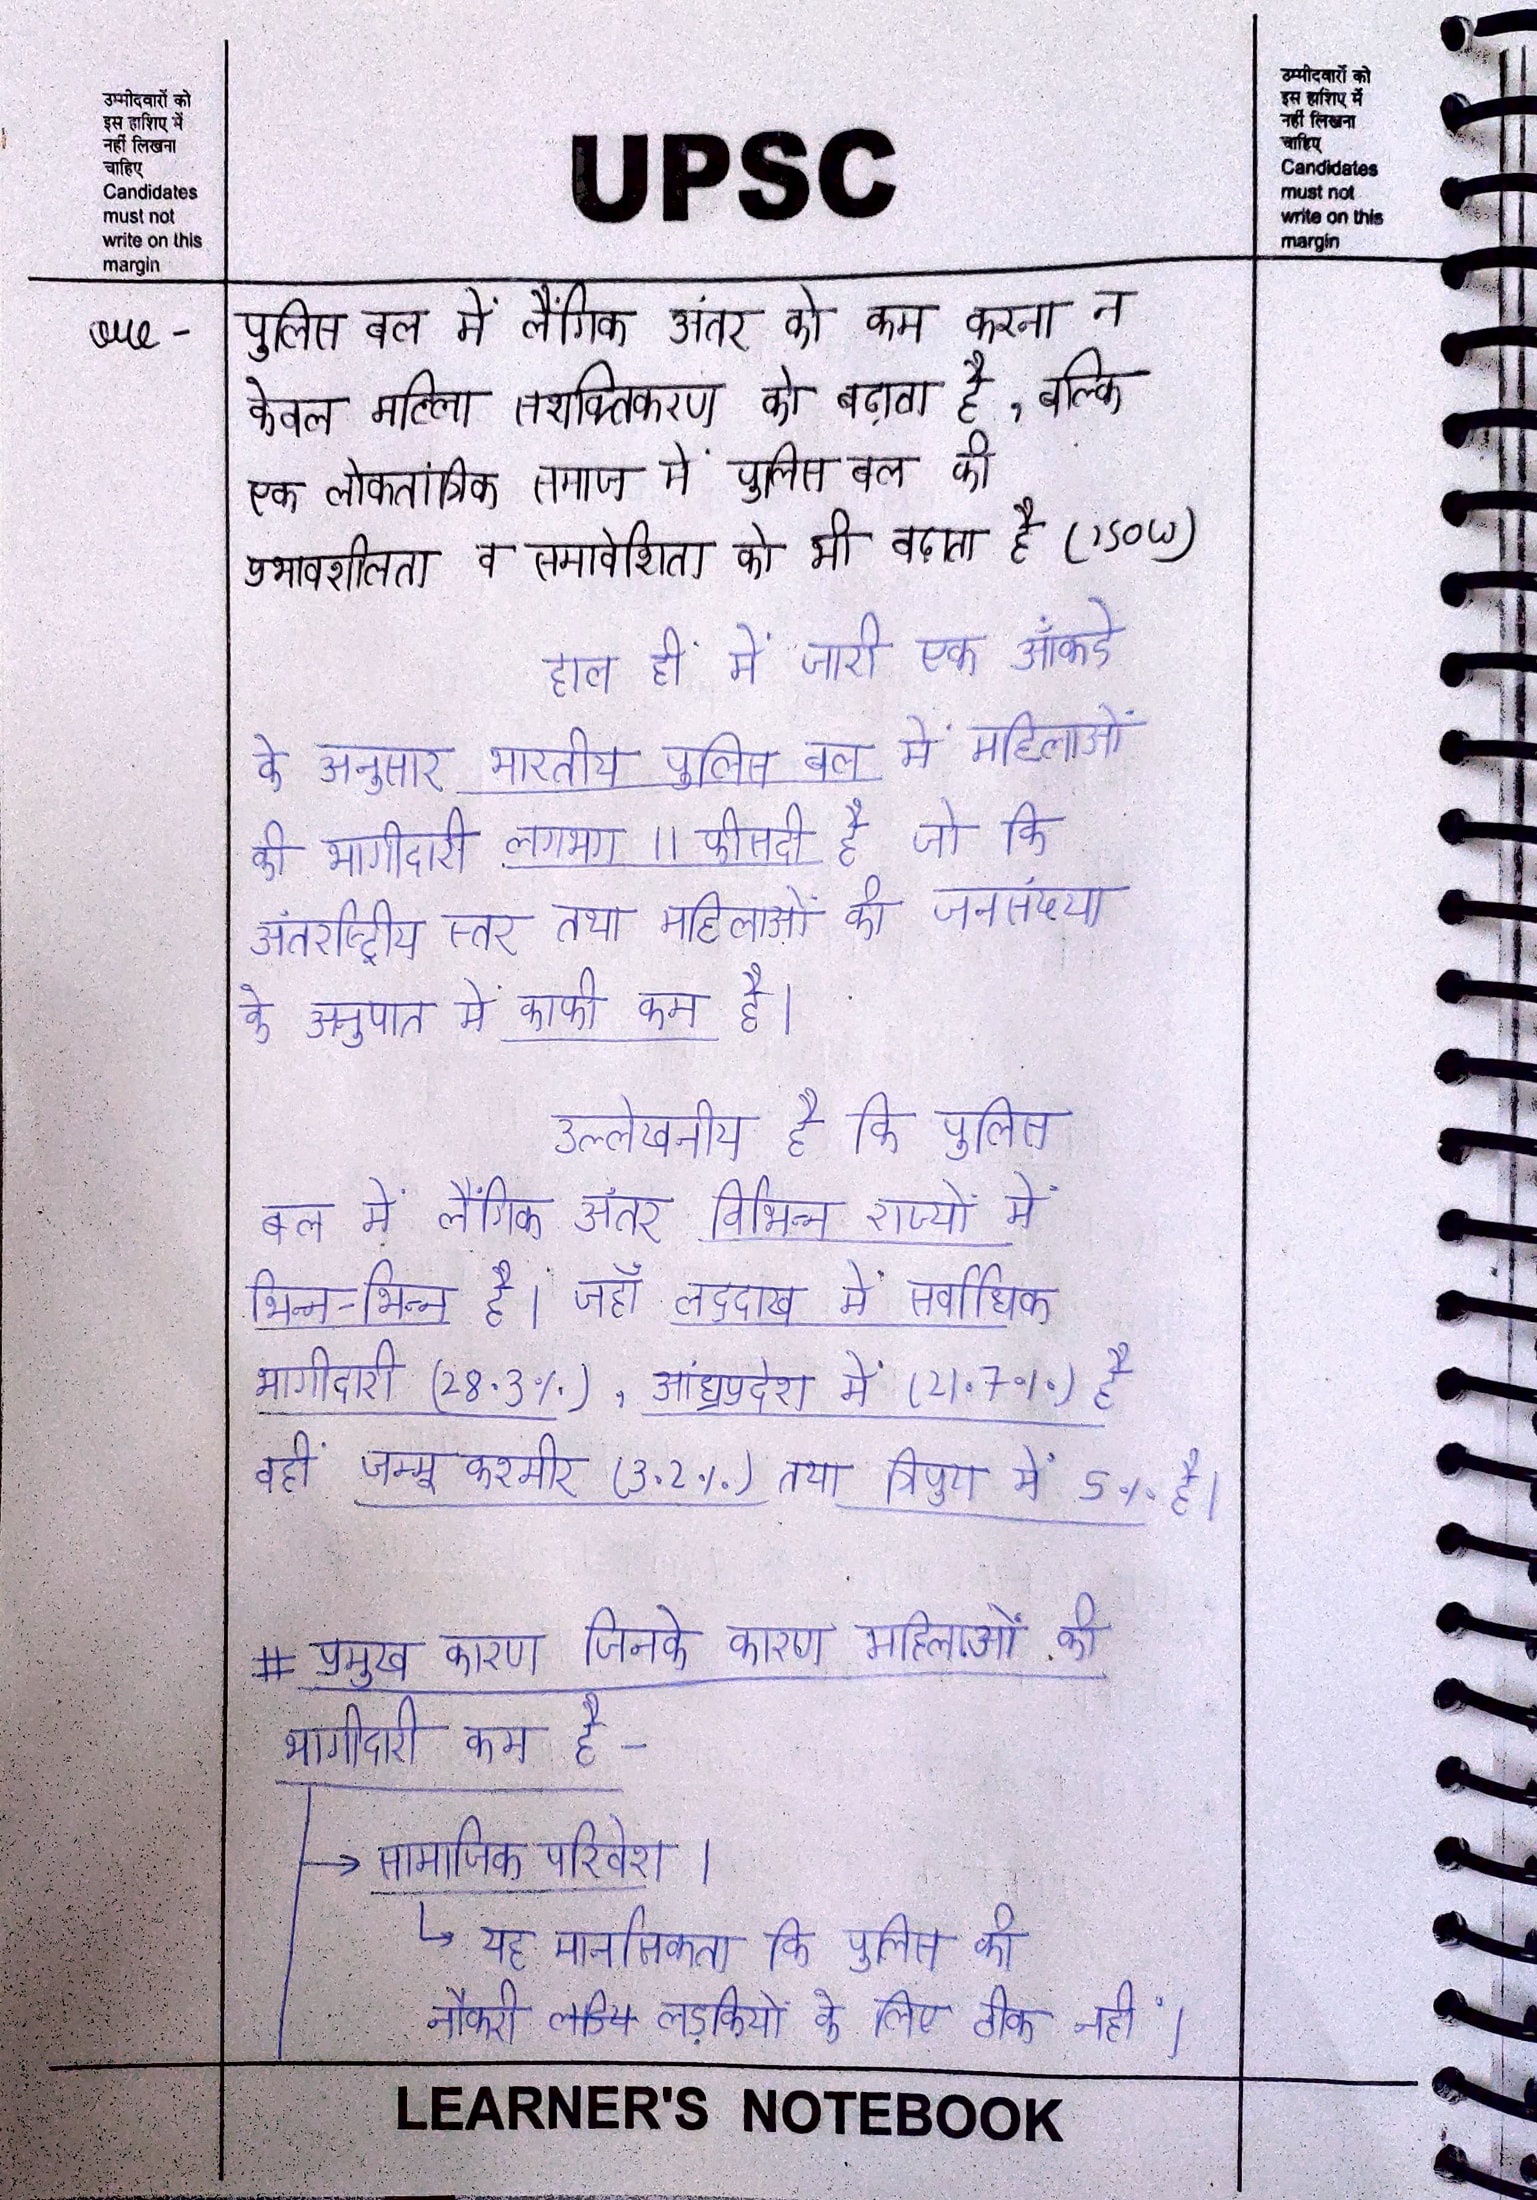 उम्मीदवारों को
इस हाशिए में
नहीं लिखना
चाहिए
Candidates
must not
write on this
margin
UPSC
उम्मीदवारों को
इस हाशिए में
नहीं लिखना
चाहिए
Candidates
must not
write on this
margin
que - पुलिस बल में लैंगिक अंतर को कम करना न
केवल महिला सशक्तिकरण को बढ़ाता है, बल्कि
एक लोकतांत्रिक समाज में पुलिस बल की
प्रभावशीलता व समावेशिता को भी बढ़ाता है (150W)
हाल हीं में जारी एक आँकड़े
के अनुसार भारतीय पुलिस बल में महिलाओं
की भागीदारी लगभग 11 फीसदी है जो कि
अंतर्राष्ट्रीय स्तर तथा महिलाओं की जनसंख्या
के अनुपात में काफी कम है।
उल्लेखनीय है कि पुलिस
बल में लैंगिक अंतर विभिन्न राज्यों में
भिन्न-भिन्न है। जहाँ लद्दाख में सर्वाधिक
भागीदारी (28.3%), आंध्रप्रदेश में (21.7%) है
वहीं जम्मू कश्मीर (3.2%) तथा त्रिपुरा में 5% है।
# प्रमुख कारण जिनके कारण महिलाओं की
भागीदारी कम है -
→ सामाजिक परिवेश।
↳ यह मानसिकता कि पुलिस की
नौकरी लड़कियों के लिए ठीक नहीं।
LEARNER'S NOTEBOOK